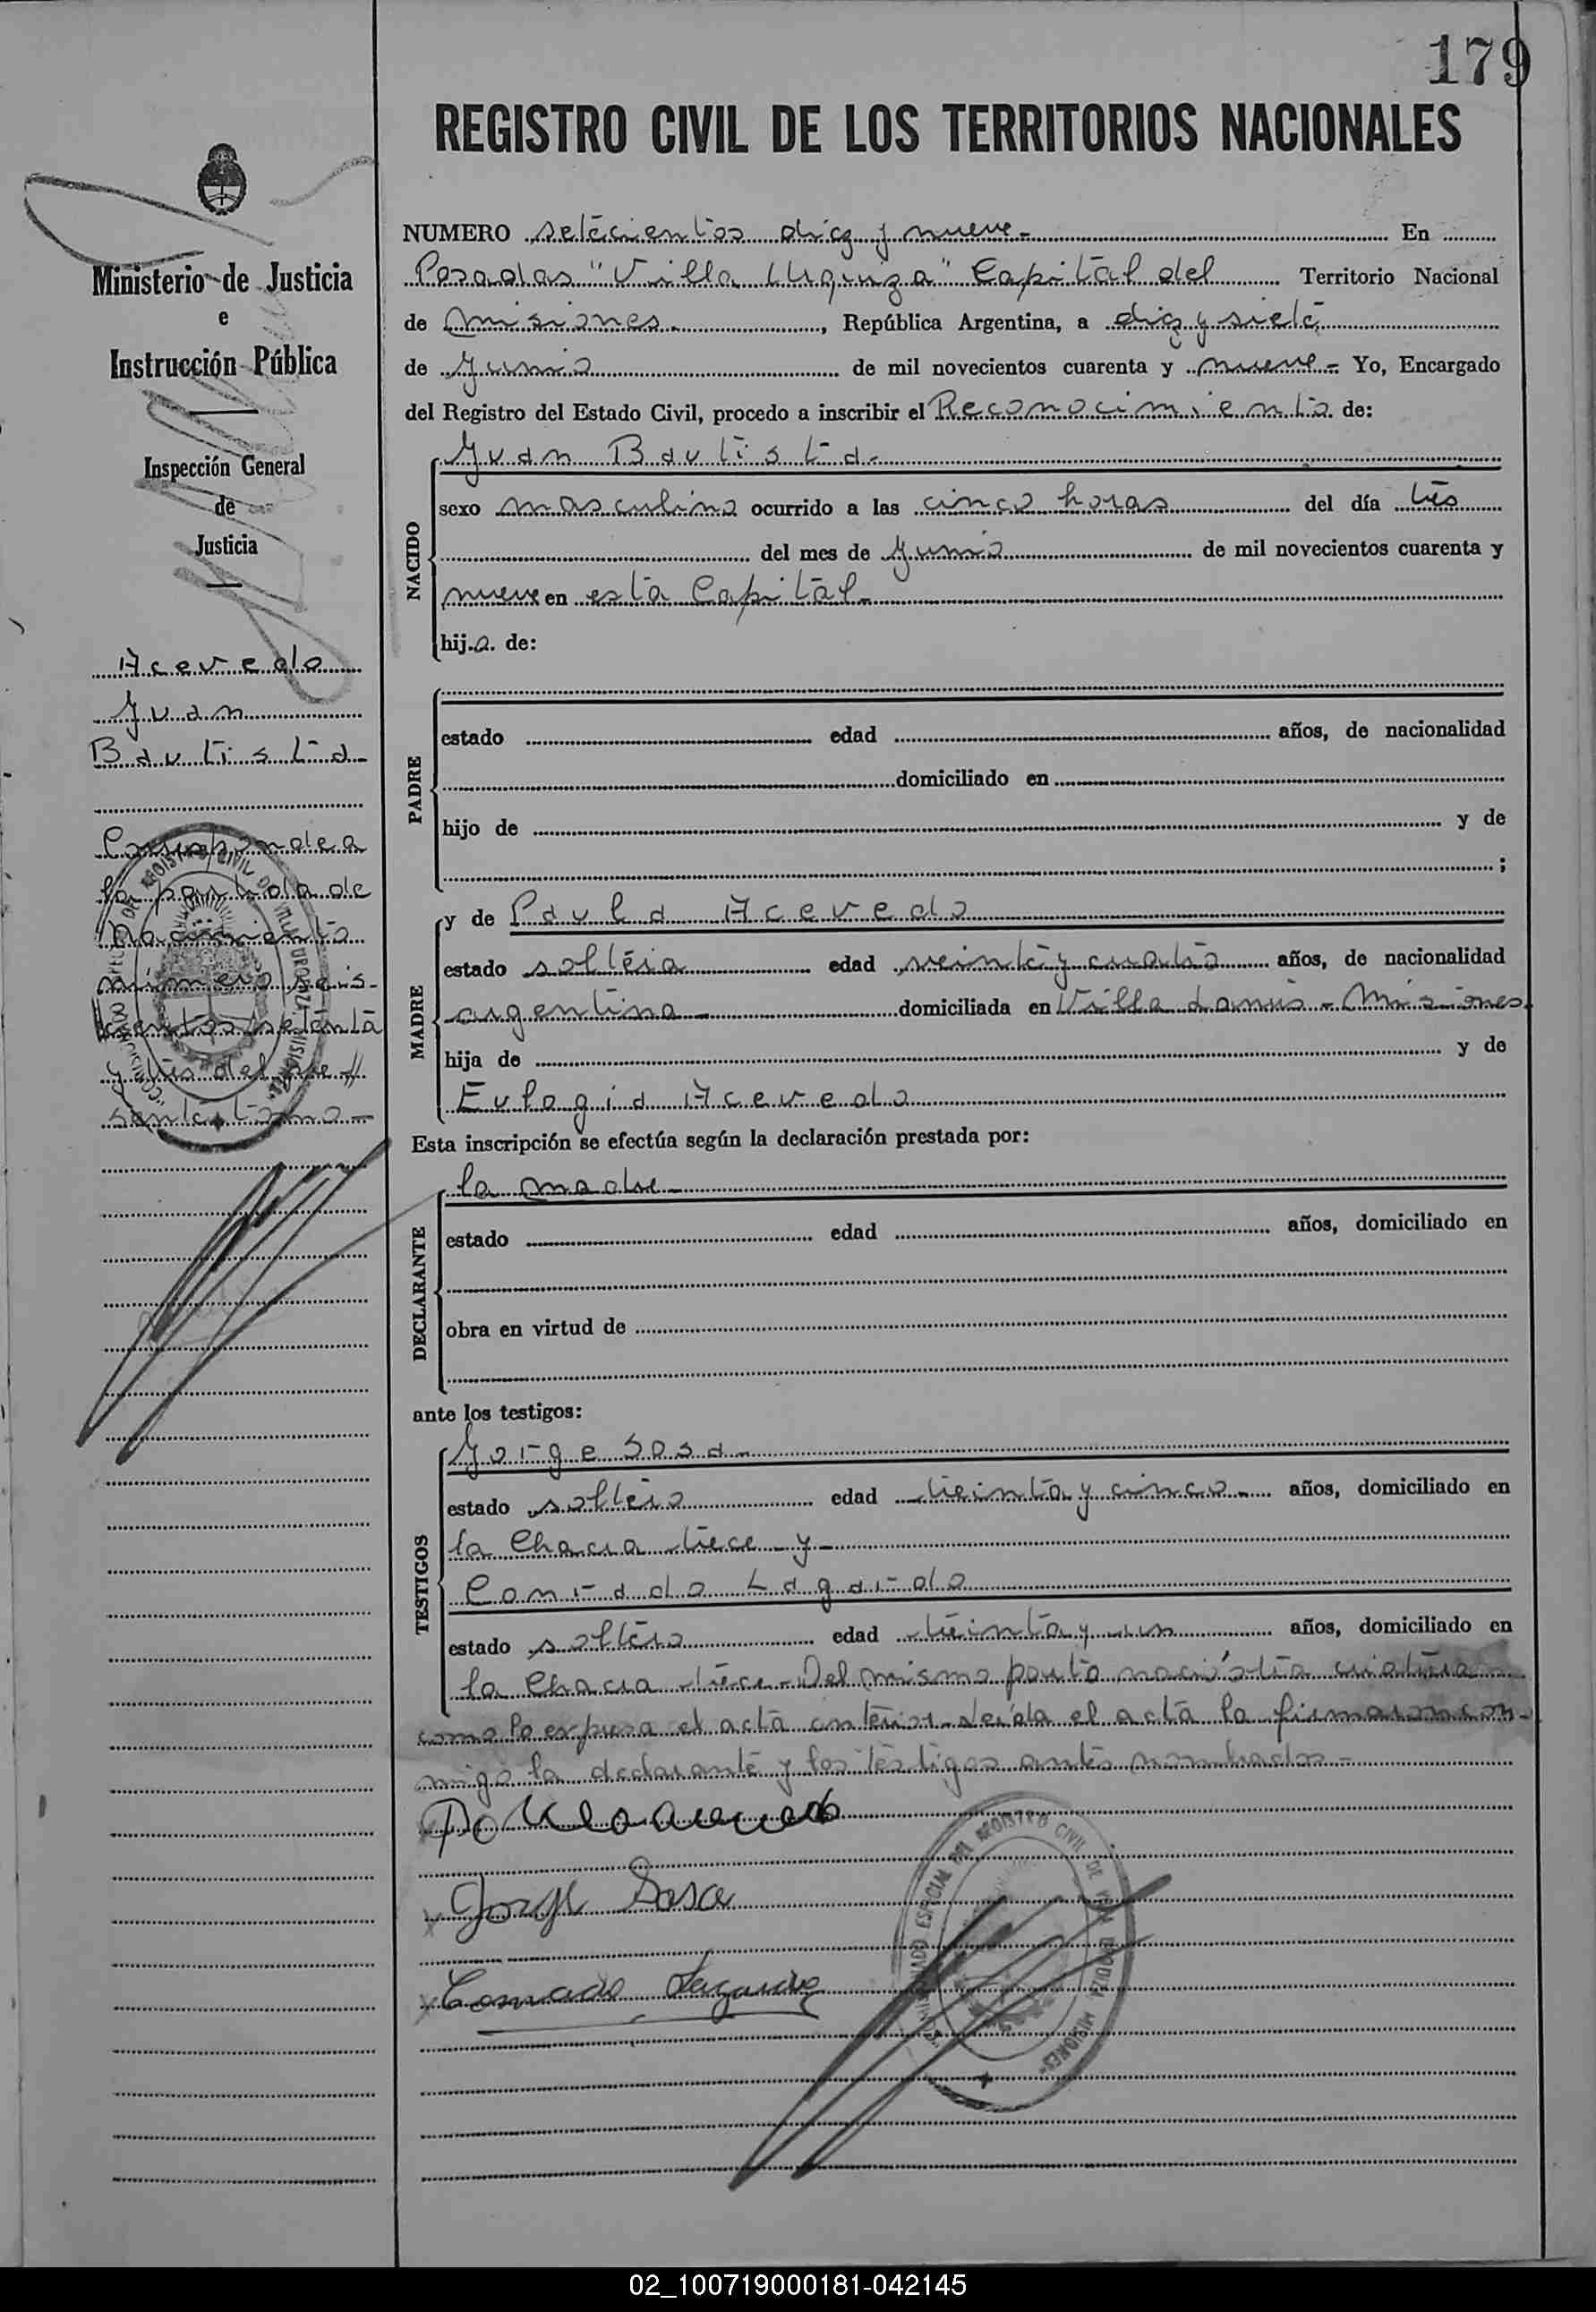 179
REGISTRO CIVIL DE LOS TERRITORIOS NACIONALES
Ministerio de Justicia
e
Instrucción Pública
Inspección General
de
Justicia
Acevedo
Juan
Bautista-
Corresponde a
la partida de
Nacimiento
número seis-
cientos setenta
y tres del pre//
sente tomo-
NUMERO setecientos diez y nueve- En
Posadas "Villa Urquiza" Capital del Territorio Nacional
de Misiones. , República Argentina, a diez y siete
de Junio de mil novecientos cuarenta y nueve- Yo, Encargado
del Registro del Estado Civil, procedo a inscribir el Reconocimiento de:
NACIDO
Juan Bautista-
sexo masculino ocurrido a las cinco horas del día tres
del mes de Junio de mil novecientos cuarenta y
nueve en esta Capital-
hijo. de:
PADRE
estado edad años, de nacionalidad
domiciliado en
hijo de y de
;
MADRE
y de Paula Acevedo
estado soltera edad veinte y cuatro años, de nacionalidad
argentina- domiciliada en Villa Lanus-Misiones.
hija de y de
Eulogia Acevedo
Esta inscripción se efectúa según la declaración prestada por:
DECLARANTE
la madre-
estado edad años, domiciliado en
obra en virtud de
ante los testigos:
TESTIGOS
Jorge Sosa-
estado soltero edad treinta y cinco- años, domiciliado en
la Chacra trece-y-
Conrado Lagardo
estado soltero edad treinta y un años, domiciliado en
la Chacra trece-Del mismo parto nació otra criatura
como lo expresa el acta anterior-Leída el acta la firmaron con-
migo la declarante y los testigos antes nombrados-
Paula Acevedo
Jorge Sosa
Conrado Lagardo
02_100719000181-042145